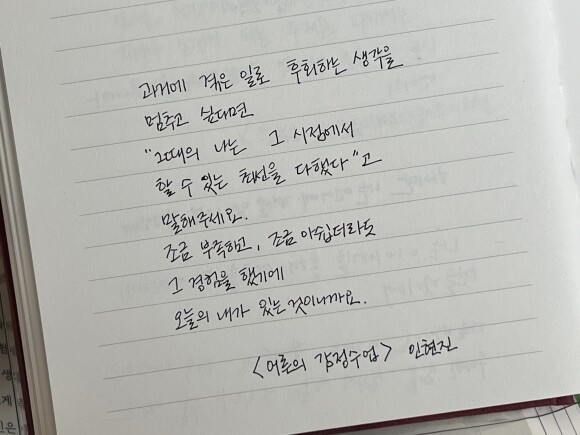 과거에 겪은 일로 후회하는 생각을
멈추고 싶다면
"그때의 나는 그 시점에서
할 수 있는 최선을 다했다"고
말해주세요.
조금 부족하고, 조금 아쉽더라도
그 경험을 했기에
오늘의 내가 있는 것이니까요.
<어른의 감정수업> 인현진